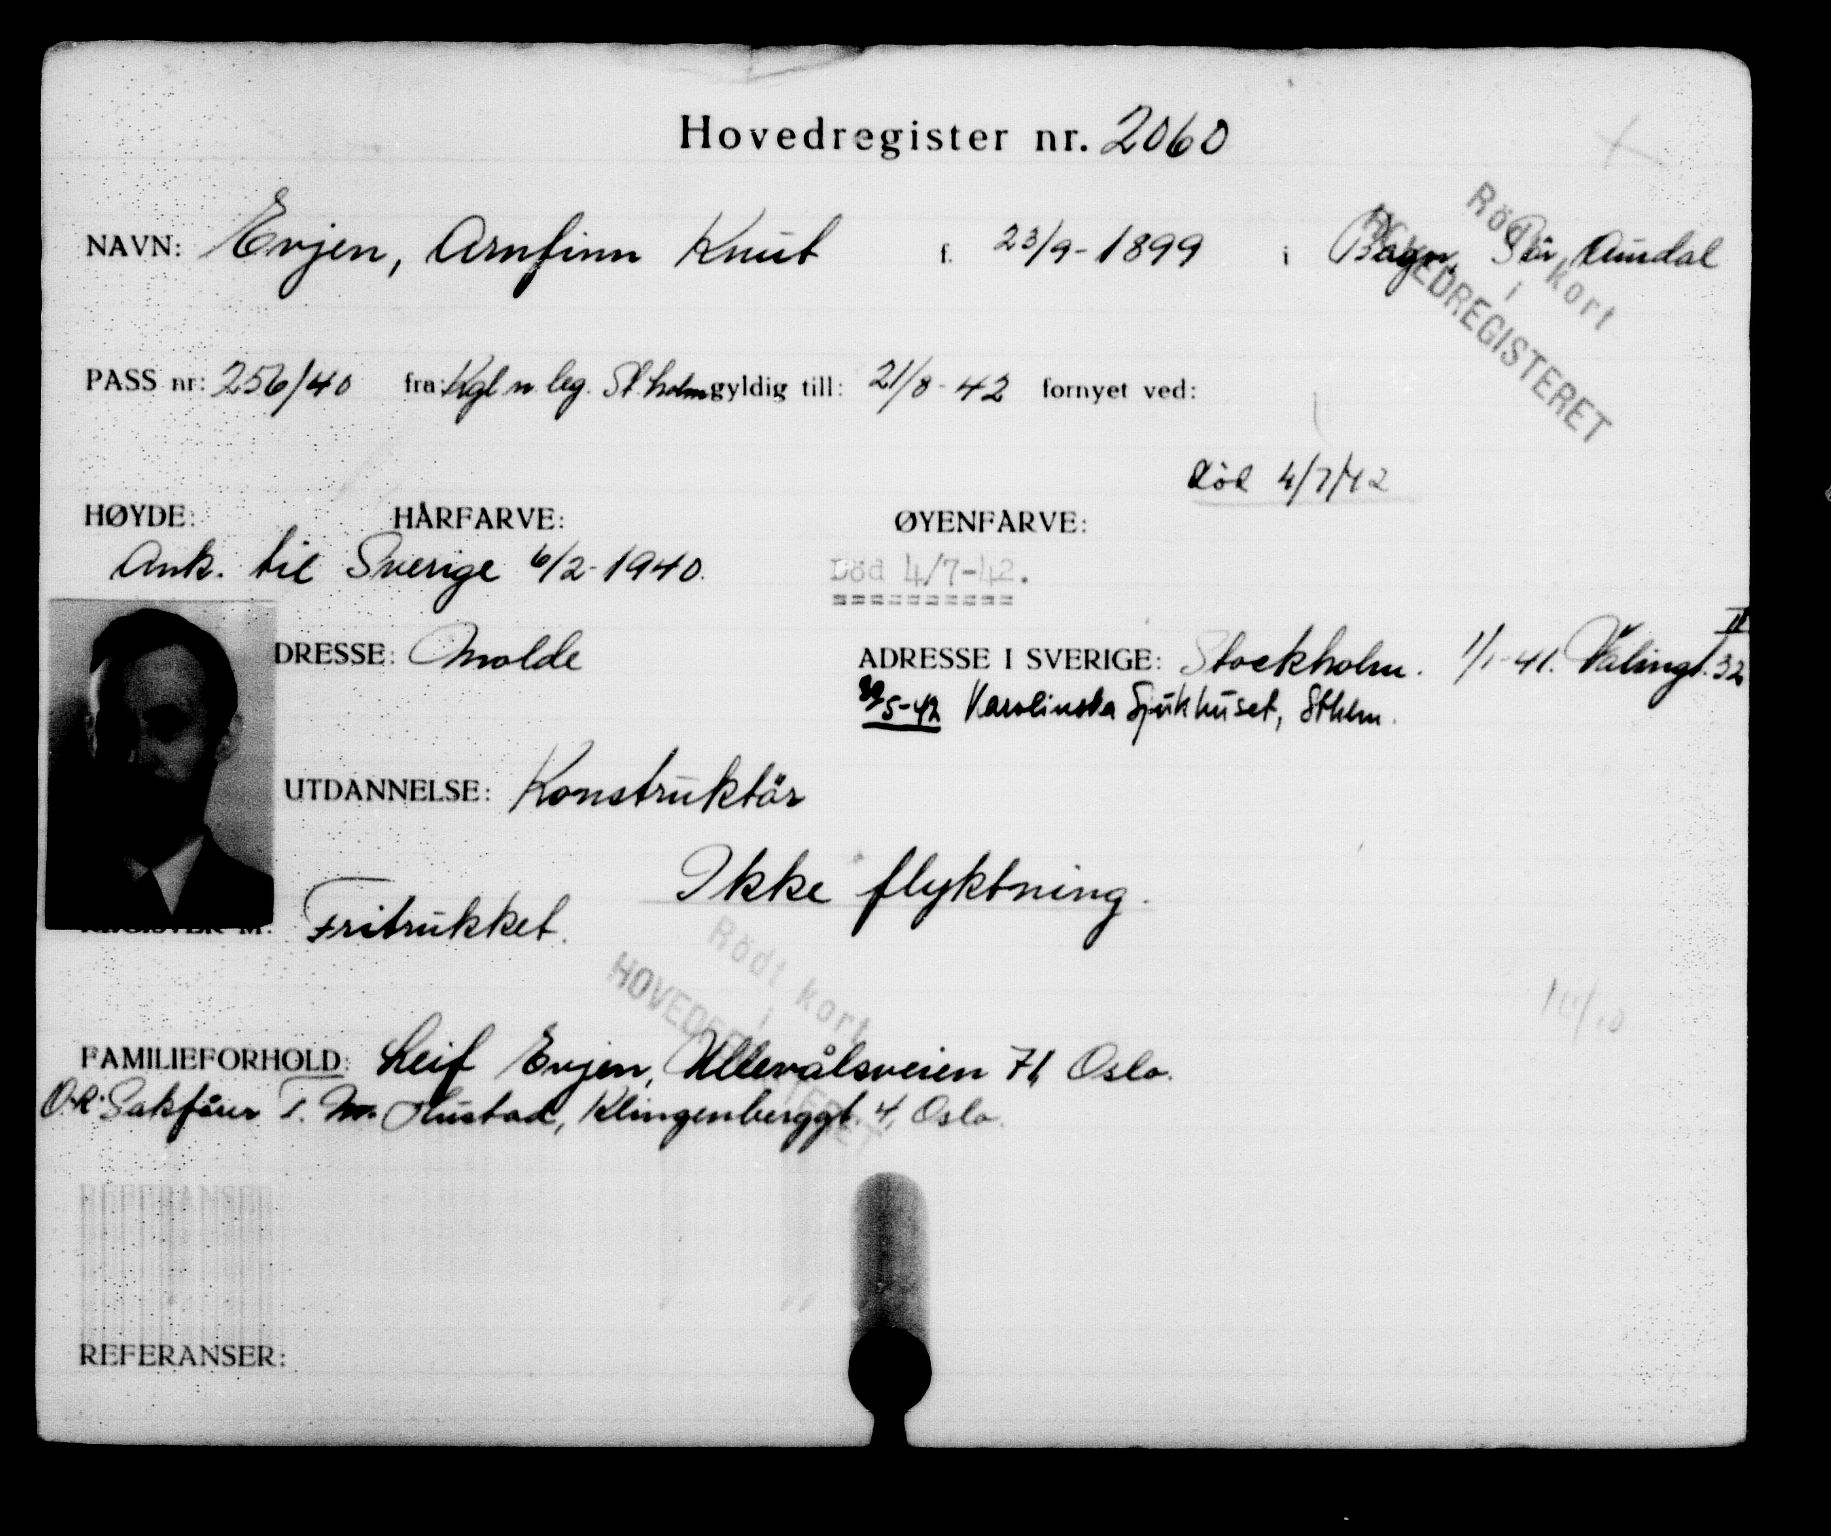 Hovedregister nr. 2060
NAVN: Evjen, Arnfinn Knut f. 23/9-1899 i Bagn, Sör Aurdal
Rödt kort
i
HOVEDREGISTERET
PASS nr: 256/40 fra: Kgl n leg. St.holm gyldig till: 21/8-42 fornyet ved:
död 4/7/42
HØYDE: HÅRFARVE: ØYENFARVE:
Ank. til Sverige 6/2-1940. Död 4/7-42.
==========
DRESSE: Molde ADRESSE I SVERIGE: Stockholm. 1/1-41. Valingt. 32 II
5-42 Karolinska Sjukhuset, Sthlm.
UTDANNELSE: Konstruktör
Ikke flyktning.
REGISTER M: Fritrukket.
Rödt kort
i
HOVEDREGISTERET
FAMILIEFORHOLD: Leif Evjen, Ullevålsveien 71, Oslo.
O.R. Sakförer T. M. Hustad, Klingenberggt. 4, Oslo.
REFERANSER: